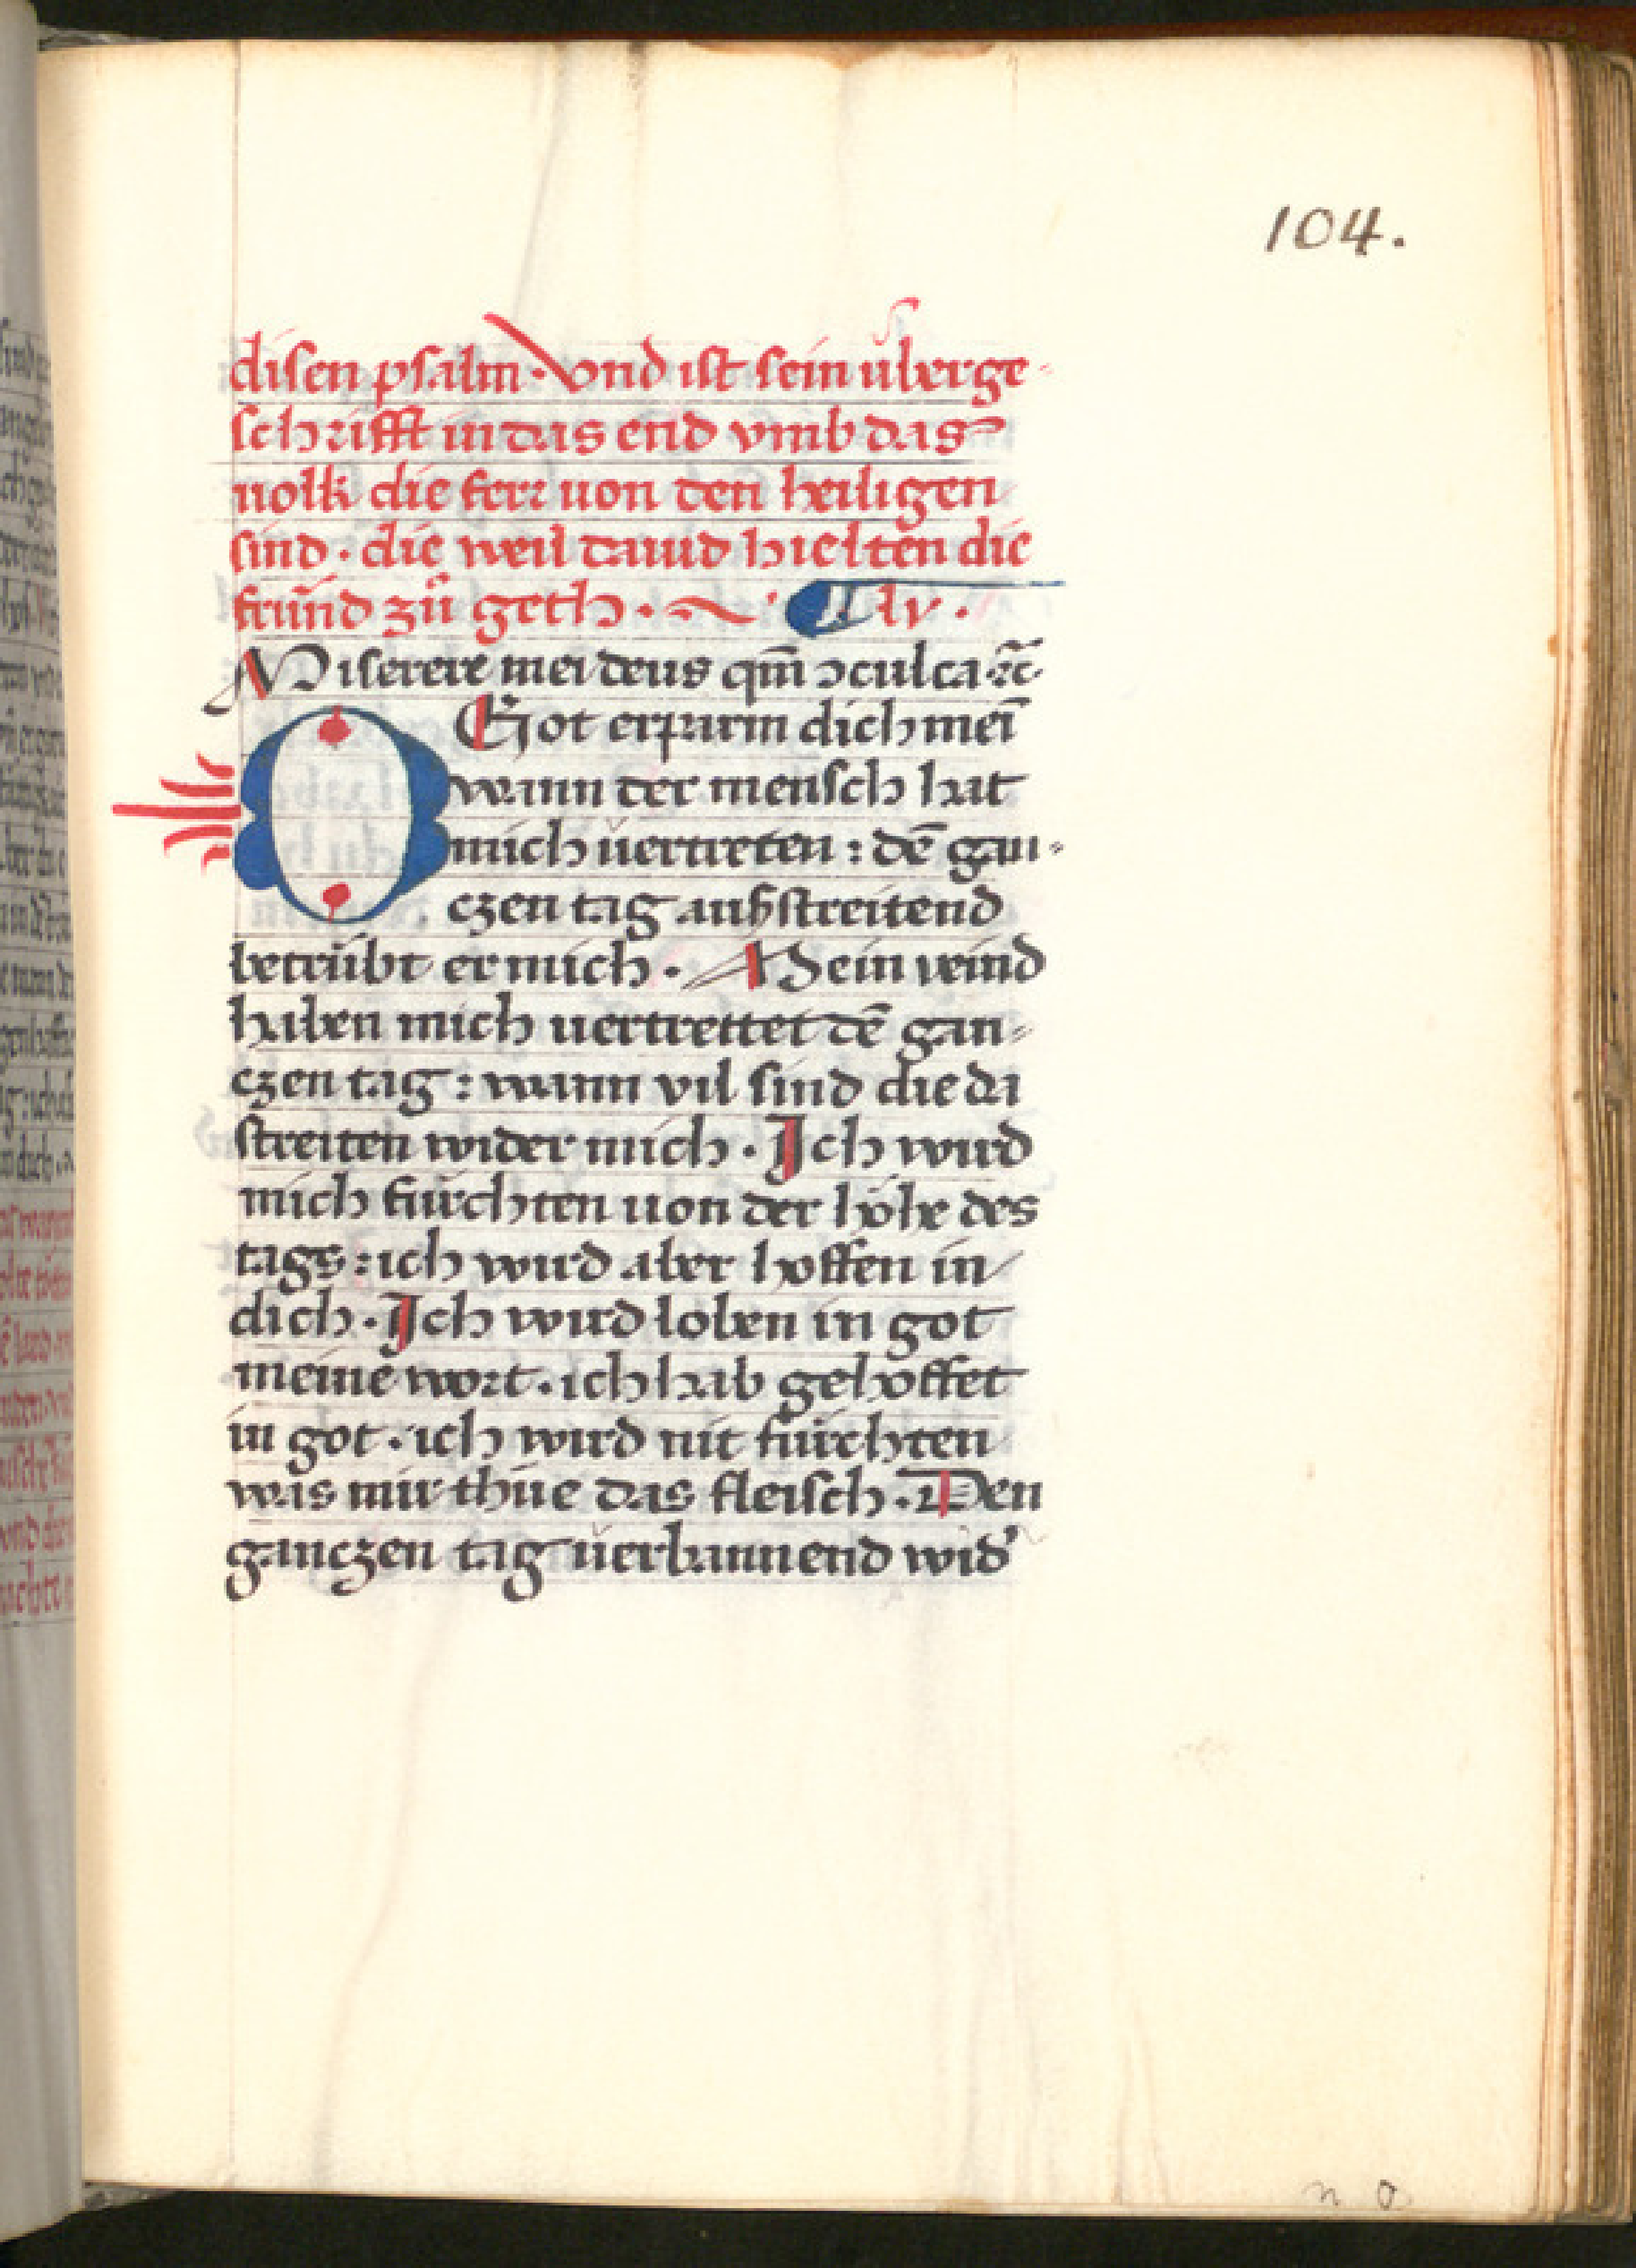 104.
disen psalm · Vnd ist sein überge-
schrifft in das end vmb das
uolk die ferr uon den heiligen
sind · die weil dauid hielten die
frund zů geth · lv ·
Miserere mei deus qm̄ ↄculca· ⁊c̄·
O Got erparm dich mei̅
wann der mensch hat
mich uertreten : de̅ gan-
czen tag anfistreitend
betrübt er mich · Mein veind
haben mich uertrettet de̅ gan-
czen tag : wann vil sind die da
streiten wider mich · Ich wird
mich fürchten uon der höhe des
tags : ich wird aber hoffen in
dich · Ich wird loben in got
meine wort · ich hab gehoffet
in got · ich wird nit fürchten
was mir thüe das fleisch · Den
ganczen tag uerbannend wid'
n o